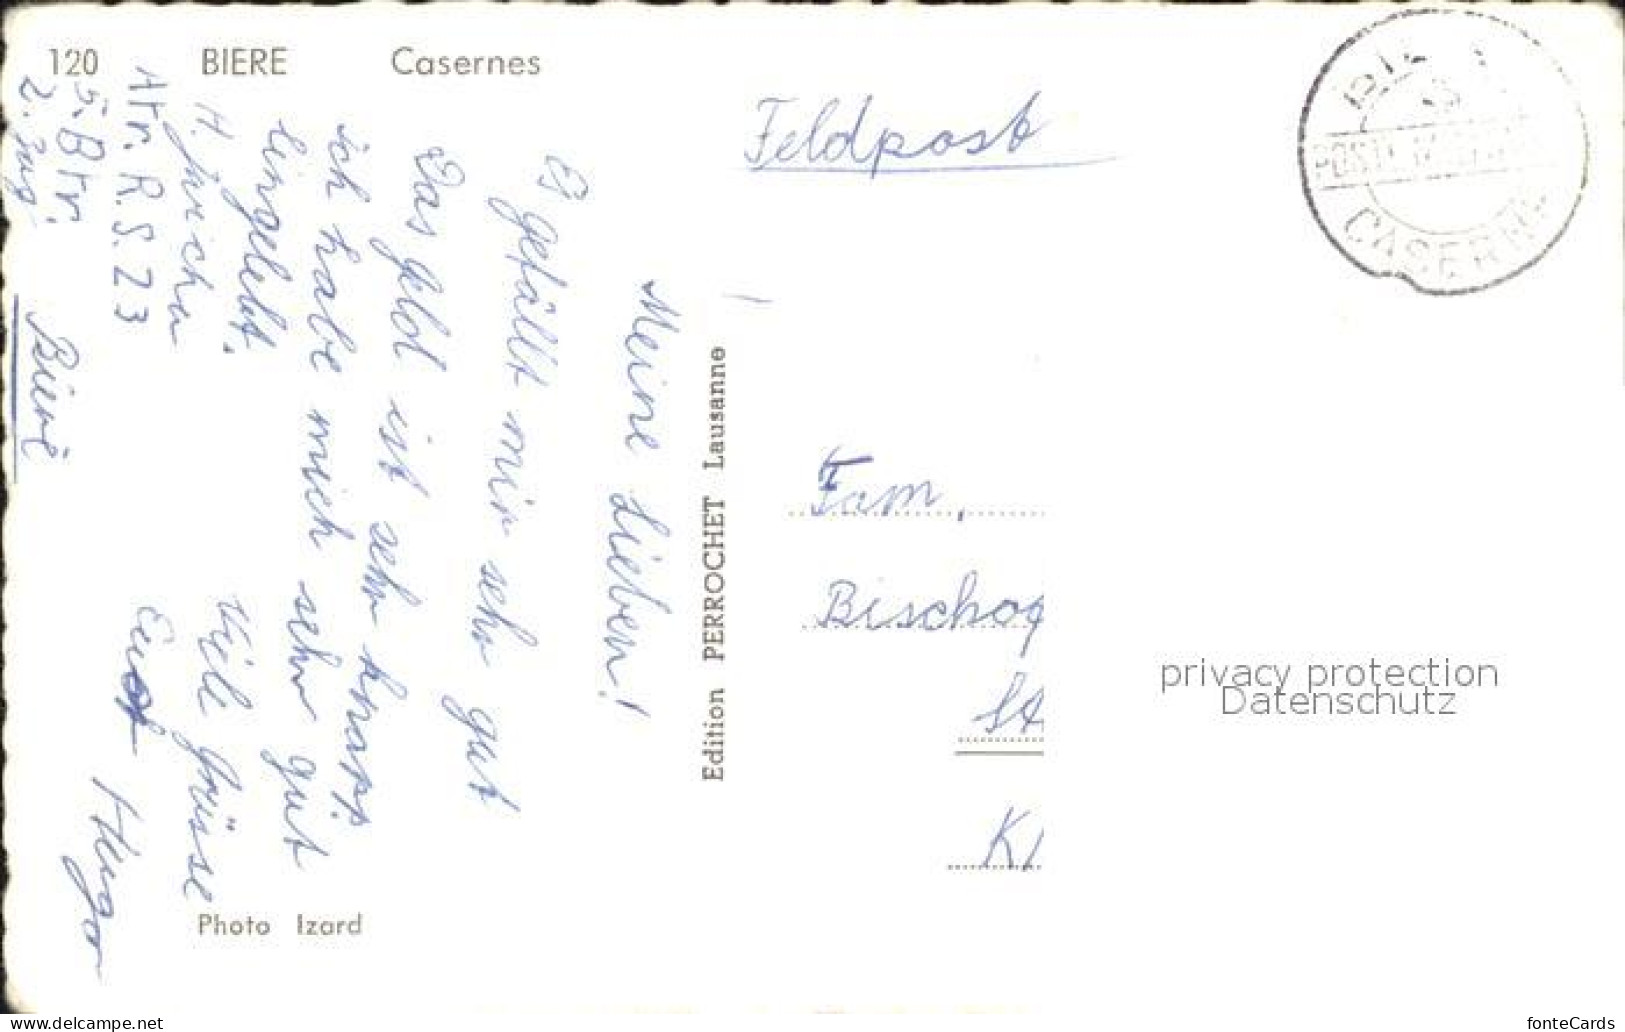 120 BIERE Casernes
Feldpost
CASERNE
Meine Lieben!
Es gefällt mir sehr gut
Das Geld ist sehr knapp.
ich habe mich sehr gut
eingelebt.
Viele Grüsse
Euer
Hugo
H.
Art. R.S. 23
5. Bttr.
2. Zug
Bière
Edition PERROCHET Lausanne
Photo Izard
Fam.
Bischo
St
K
privacy protection
Datenschutz
www.delcampe.net
fonteCards